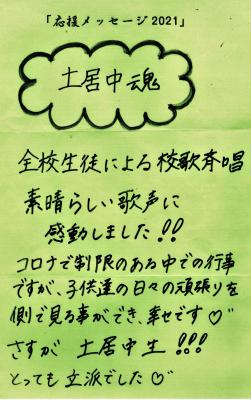 「応援メッセージ2021」
土居中魂
全校生徒による校歌斉唱
素晴らしい歌声に
感動しました!!
コロナで制限のある中での行事
ですが、子供達の日々の頑張りを
側で見る事ができ、幸せです♡"
さすが 土居中生!!!
とっても立派でした♡"